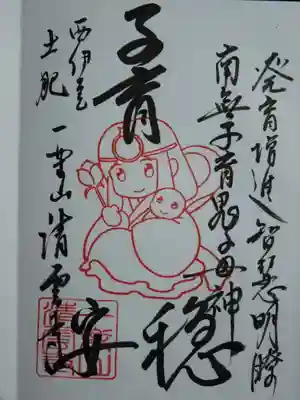 発育増進智慧明瞭
南無子育鬼子母神
子育
安穏
西伊豆
土肥
一雲山清雲寺